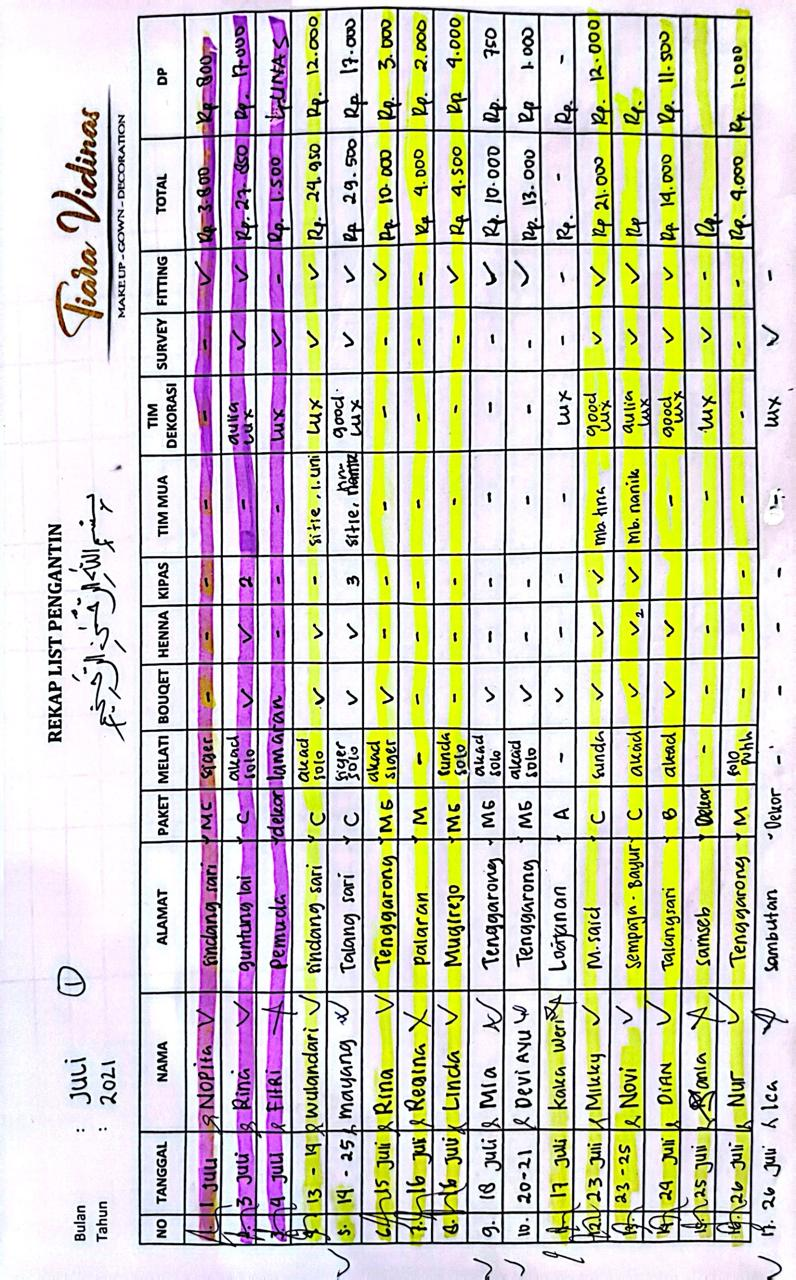 REKAP LIST PENGANTIN
بسم الله الرحمن الرحيم
Tiara Vidinas
MAKEUP - GOWN - DECORATION
Bulan : JULI ①
Tahun : 2021
NO TANGGAL NAMA ALAMAT PAKET MELATI BOUQET HENNA KIPAS TIM MUA TIM DEKORASI SURVEY FITTING TOTAL DP
1. 1 Juli & NOPITA ✓ Sindang sari MC siger - - - - - - ✓ Rp 3.800 Rp 800
3 Juli & Rina ✓ guntung lai C akad solo ✓ ✓ 2 - aulia lux ✓ ✓ Rp. 27.850 Rp. 17.000
4 Juli & FITRI Pemuda dekor lamaran - - - lux ✓ - Rp. 1.500 LUNAS
13 - 14 & Wulandari ✓ Sindang sari C akad solo ✓ ✓ - sitie, i. uni lux ✓ ✓ Rp. 24.950 Rp. 12.000
5. 14 - 25 & Mayang Talang sari C siger solo ✓ ✓ 3 sitie, nanik good lux ✓ ✓ Rp 29.500 Rp 17.000
6. 15 Juli & Rina ✓ Tenggarong ME akad siger ✓ - - - - - ✓ Rp 10.000 Rp. 3.000
7. 16 Juli & Regina X palaran M - - - - - - - - Rp 4.000 Rp. 2.000
8. 16 Juli & Linda ✓ Mugirejo ME sunda solo - - - - - - ✓ Rp 4.500 Rp 4.000
9. 18 Juli & Mia Tenggarong ME akad solo ✓ - - - - - ✓ Rp. 10.000 Rp. 750
10. 20-21 & Devi Ayu Tenggarong ME akad solo ✓ - - - - - ✓ Rp. 13.000 Rp 1.000
17 Juli Kaka Weri Loajanan A - ✓ - - - lux - - Rp. - Rp. -
12. 23 Juli & Mikky ✓ M. said C sunda ✓ ✓ ✓ mba tina good lux ✓ ✓ Rp 21.000 Rp. 12.000
23-25 & Novi ✓ Sempaja - Bayur C akad ✓ ✓2 ✓ Mb. nanik aulia lux ✓ ✓ Rp Rp.
24 Juli & DIAN ✓ Talangsari B akad ✓ ✓ - - good lux ✓ ✓ Rp 14.000 Rp. 11.500
25 Juli samseb Dekor - - - - - lux ✓ - Rp.
16. 26 Juli & Nur ✓ Tenggarong M solo putih - - - - - - - Rp. 4.000 Rp. 1.000
✓ 17. 26 Juli & Ica sambutan Dekor - - - - - lux ✓ -